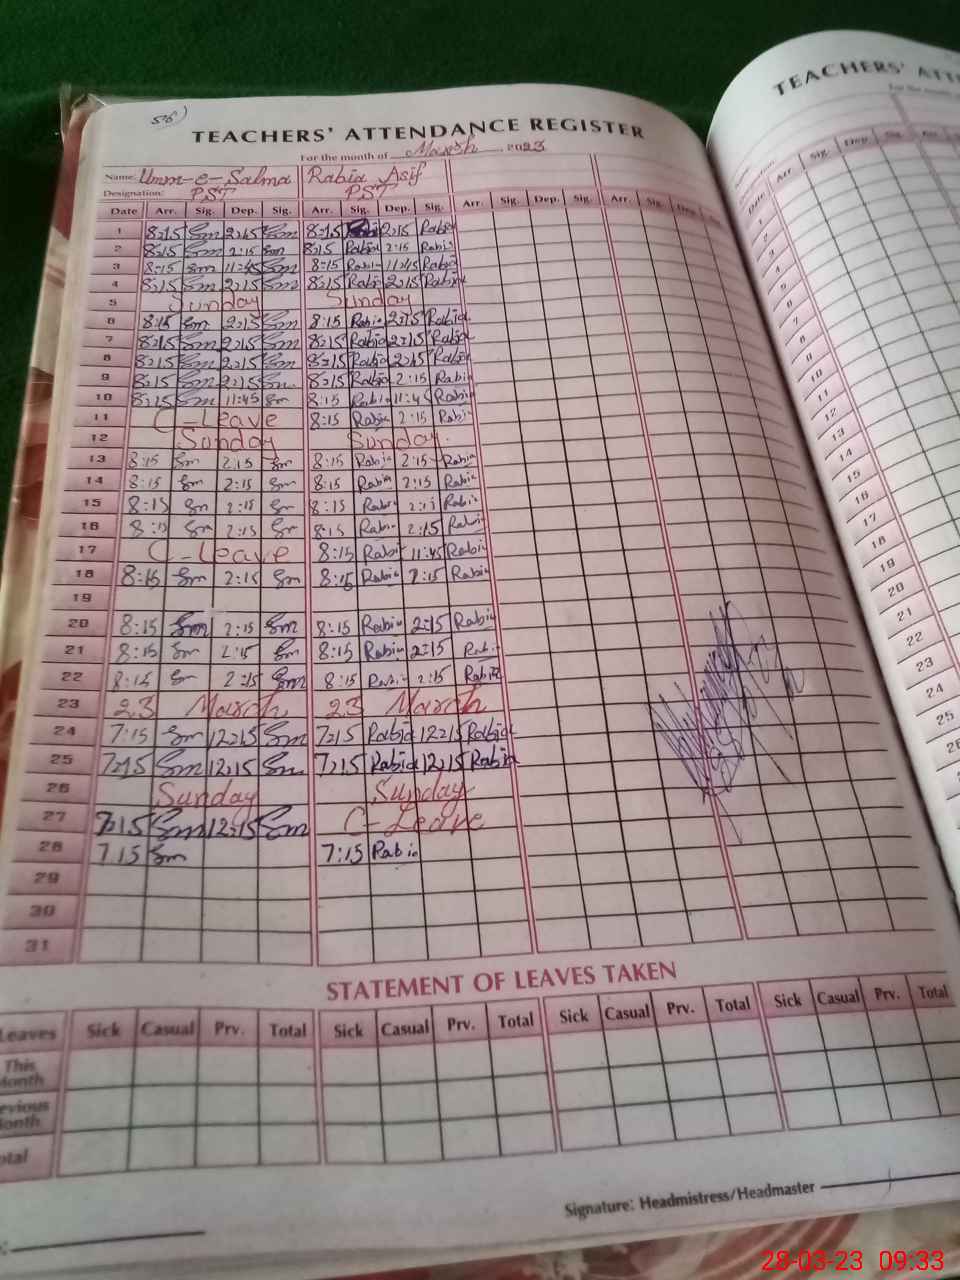 56)
TEACHERS' ATTENDANCE REGISTER
For the month of March 2023
Name: Umm-e-Salma Rabia Asif
Designation: PST PST
Date Arr. Sig. Dep. Sig. Arr. Sig. Dep. Sig. Arr. Sig. Dep. Sig. Arr. Sig. Dep. Sig.
1 8:15 Sm 2:15 Sm 8:15 2:15 Rabia
2 8:15 Sm 2:15 Sm 8:15 Rabia 2:15 Rabia
3 8:15 Sm 11:45 Sm 8:15 Rabia 11:45 Rabia
4 8:15 Sm 2:15 Sm 8:15 Rabia 2:15 Rabia
5 Sunday Sunday
6 8:15 Sm 2:15 Sm 8:15 Rabia 2:15 Rabia
7 8:15 Sm 2:15 Sm 8:15 Rabia 2:15 Rabia
8 8:15 Sm 2:15 Sm 8:15 Rabia 2:15 Rabia
9 8:15 Sm 2:15 Sm 8:15 Rabia 2:15 Rabia
10 8:15 Sm 11:45 Sm 8:15 Rabia 11:45 Rabia
11 C-Leave 8:15 Rabia 2:15 Rabia
12 Sunday Sunday.
13 8:15 Sm 2:15 Sm 8:15 Rabia 2:15 Rabia
14 8:15 Sm 2:15 Sm 8:15 Rabia 2:15 Rabia
15 8:15 Sm 2:15 Sm 8:15 Rabia 2:15 Rabia
16 8:15 Sm 2:15 Sm 8:15 Rabia 2:15 Rabia
17 C-Leave 8:15 Rabia 11:45 Rabia
18 8:15 Sm 2:15 Sm 8:15 Rabia 2:15 Rabia
19
20 8:15 Sm 2:15 Sm 8:15 Rabia 2:15 Rabia
21 8:15 Sm 2:15 Sm 8:15 Rabia 2:15 Rabia
22 8:15 Sm 2:15 Sm 8:15 Rabia 2:15 Rabia
23 23 March 23 March
24 7:15 Sm 12:15 Sm 7:15 Rabia 12:15 Rabia
25 7:15 Sm 12:15 Sm 7:15 Rabia 12:15 Rabia
26 Sunday Sunday
27 7:15 Sm 12:15 Sm C-Leave
28 7:15 Sm 7:15 Rabia
29
30
31
STATEMENT OF LEAVES TAKEN
Leaves Sick Casual Prv. Total Sick Casual Prv. Total Sick Casual Prv. Total Sick Casual Prv. Total
This Month
Previous Month
Total
Signature: Headmistress/Headmaster
TEACHERS' ATT
For the month
Date Arr. Sig. Dep. Sig.
1
2
3
4
5
6
7
8
9
10
11
12
13
14
15
16
17
18
19
20
21
22
23
24
25
26
28-03-23 09:33